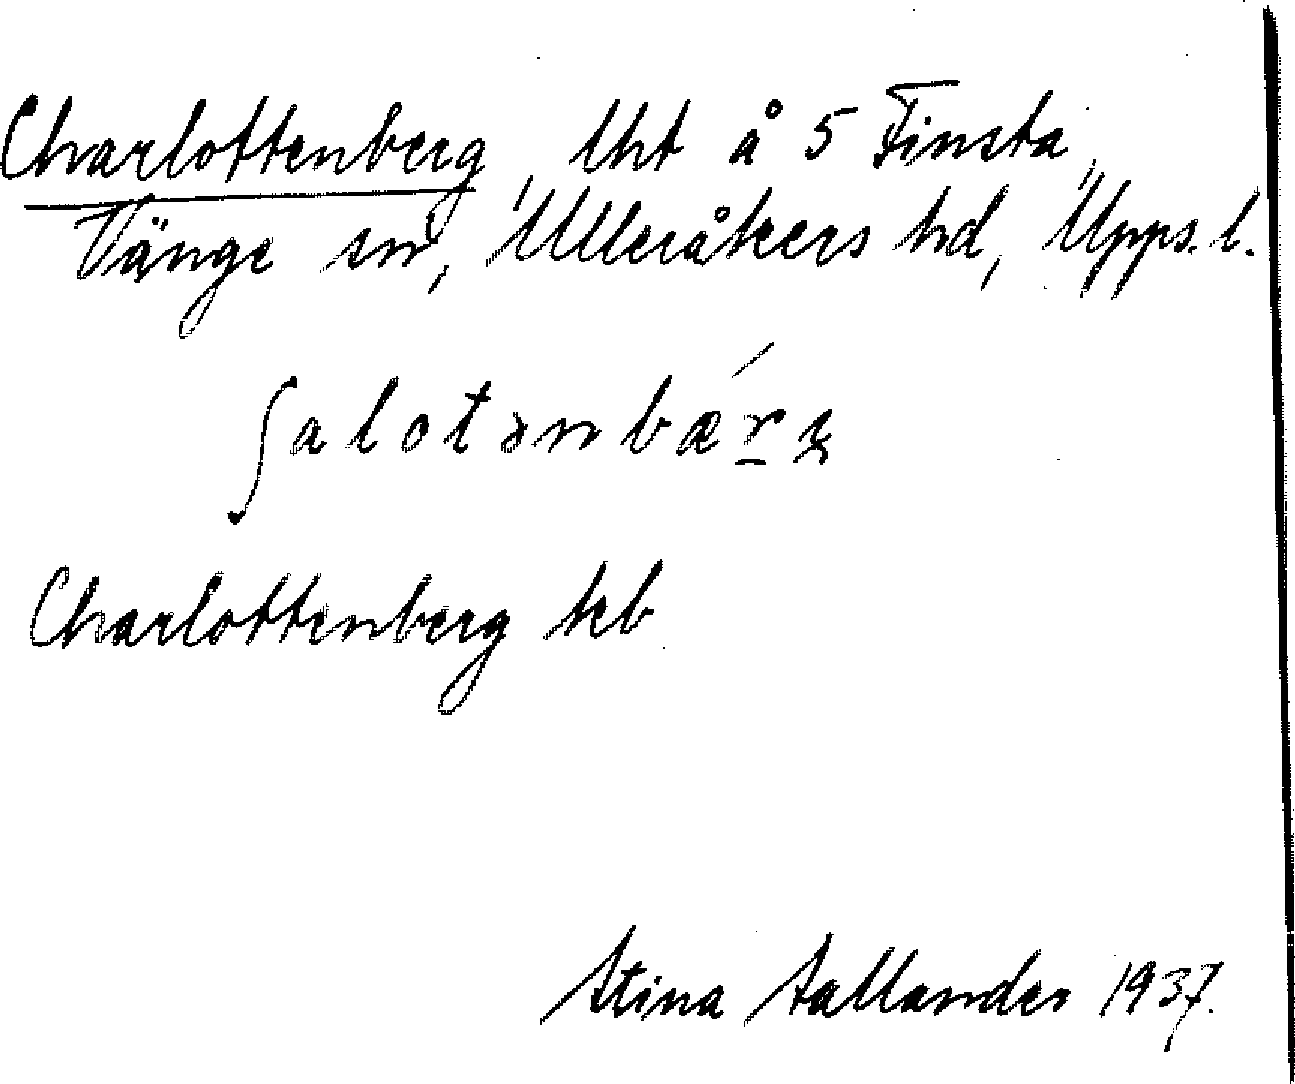 Charlottenberg, lht å 5 Finsta,
Vänge sn, Ulleråkers hd, Upps. l.
ʃalotənbærg
Charlottenberg kb
Stina Sallander 1937.